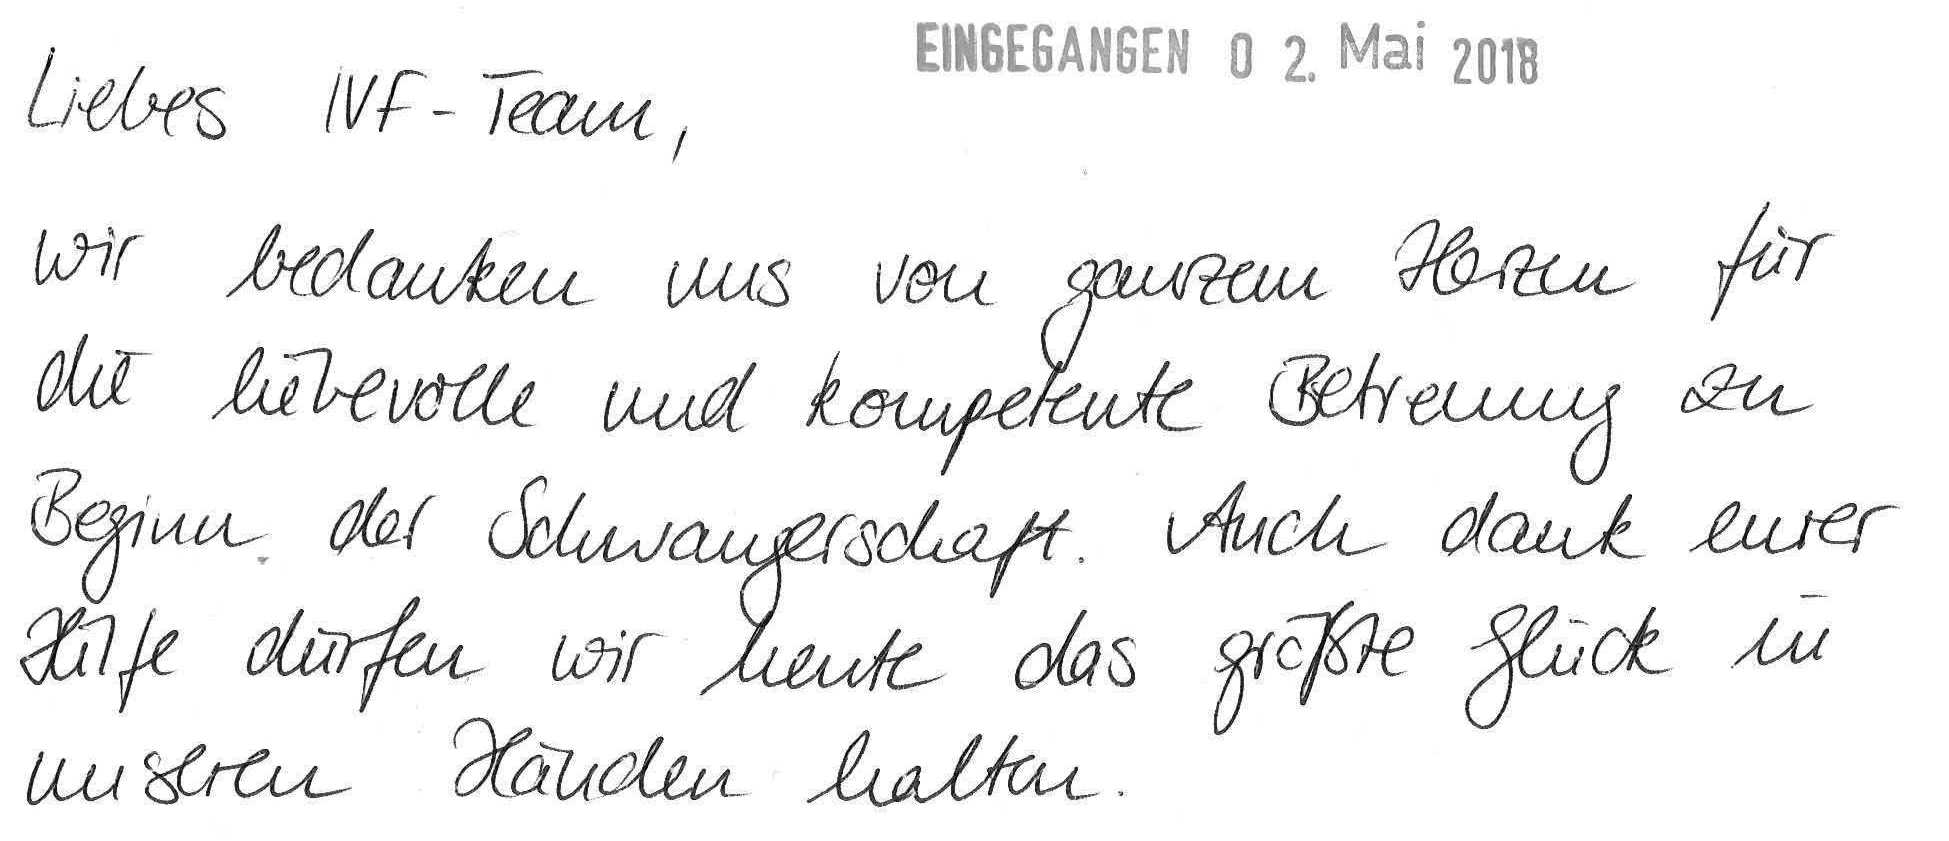 EINGEGANGEN 0 2. Mai 2018
Liebes IVF-Team,
wir bedanken uns von ganzem Herzen für
die liebevolle und kompetente Betreuung zu
Beginn der Schwangerschaft. Auch dank eurer
Hilfe dürfen wir heute das größte Glück in
unseren Händen halten.